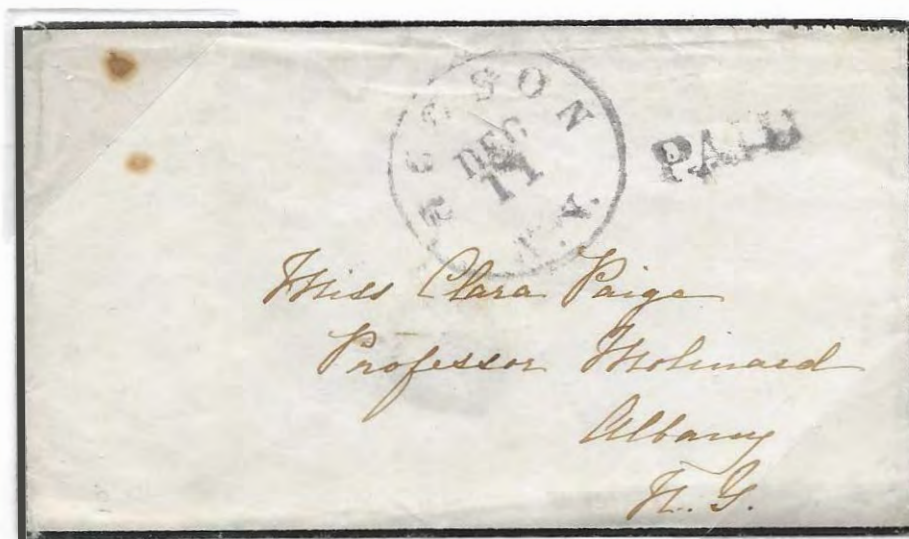 HUDSON N.Y.
DEC
11
PAID
Miss Clara Paige
Professor Molinard
Albany
N. Y.